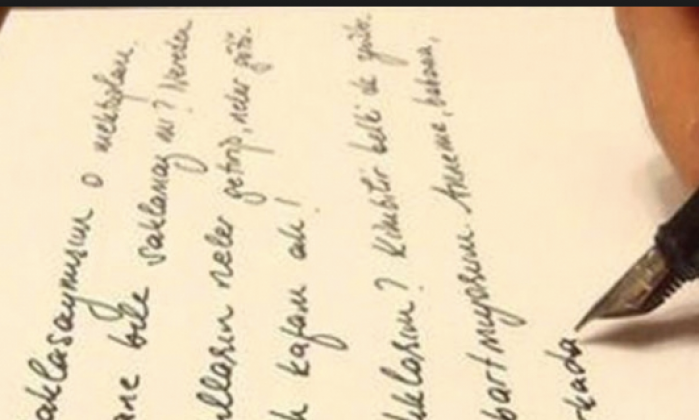 aklasaymışım o mektupları.
ane bile saklamaz mı? Nereden
lların neler getirip, neler götü-
h kafam ah!
klarım? Kimbilir belki de
bartmıyorum. Anneme, babama,
rkada